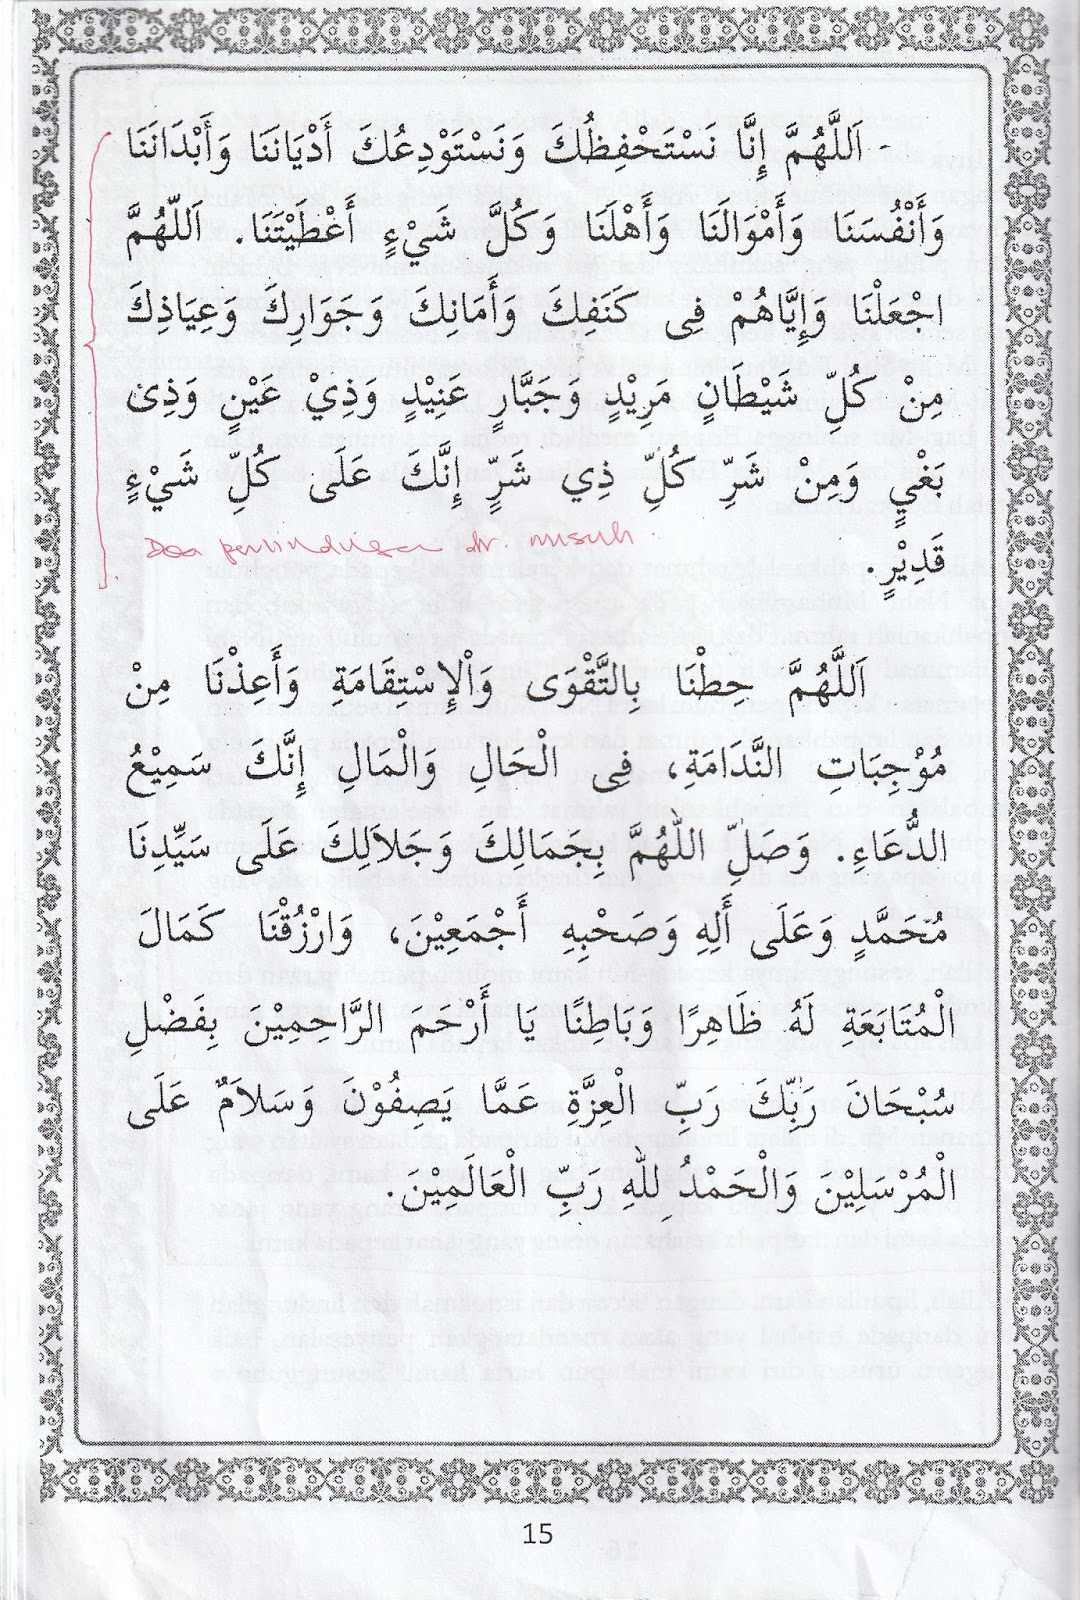 - اَللَّهُمَّ إِنَّا نَسْتَحْفِظُكَ وَنَسْتَوْدِعُكَ أَدْيَانَنَا وَأَبْدَانَنَا
وَأَنْفُسَنَا وَأَمْوَالَنَا وَأَهْلَنَا وَكُلَّ شَيْءٍ أَعْطَيْتَنَا. اَللّهُمَّ
اجْعَلْنَا وَإِيَّاهُمْ فِى كَنَفِكَ وَأَمَانِكَ وَجَوَارِكَ وَعِيَاذِكَ
مِنْ كُلِّ شَيْطَانٍ مَرِيْدٍ وَجَبَّارٍ عَنِيْدٍ وَذِيْ عَيْنٍ وَذِىْ
بَغْيٍ وَمِنْ شَرِّ كُلِّ ذِي شَرٍّ إِنَّكَ عَلَى كُلِّ شَيْءٍ
Doa perlindungan dr. musuh.
قَدِيْرٍ.
اَللَّهُمَّ حِطْنَا بِالتَّقْوَى وَاْلإِسْتِقَامَةِ وَأَعِذْنَا مِنْ
مُوْجِبَاتِ النَّدَامَةِ، فِى الْحَالِ وَالْمَالِ إِنَّكَ سَمِيْعُ
الدُّعَاءِ. وَصَلِّ اللّهُمَّ بِجَمَالِكَ وَجَلاَلِكَ عَلَى سَيِّدِنَا
مُحَمَّدٍ وَعَلَى أَلِهِ وَصَحْبِهِ أَجْمَعِيْنَ، وَارْزُقْنَا كَمَالَ
الْمُتَابَعَةِ لَهُ ظَاهِرًا وَبَاطِنًا يَا أَرْحَمَ الرَّاحِمِيْنَ بِفَضْلِ
سُبْحَانَ رَبِّكَ رَبِّ الْعِزَّةِ عَمَّا يَصِفُوْنَ وَسَلاَمٌ عَلَى
الْمُرْسَلِيْنَ وَالْحَمْدُ لِلّهِ رَبِّ الْعَالَمِيْنَ.
15